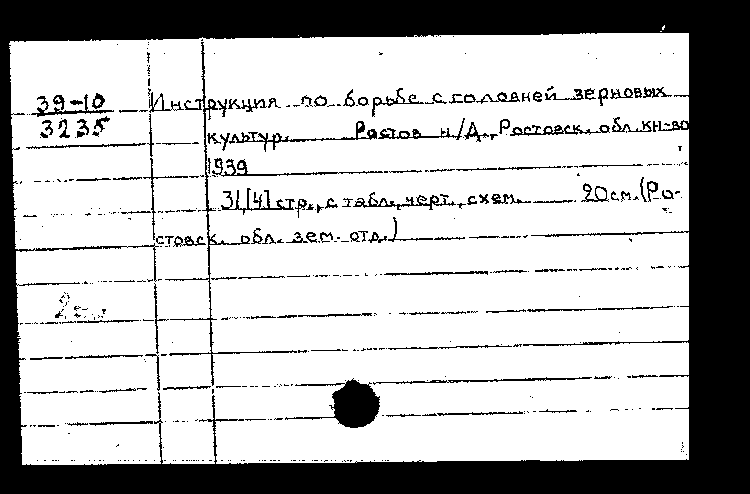 39-10
3235
Инструкция по борьбе с головней зерновых
культур. Ростов н/Д., Ростовск. обл. кн-во
1939
31,[4] стр., с табл., черт., схем. 20 см. (Ро-
стовск. обл. зем. отд.)